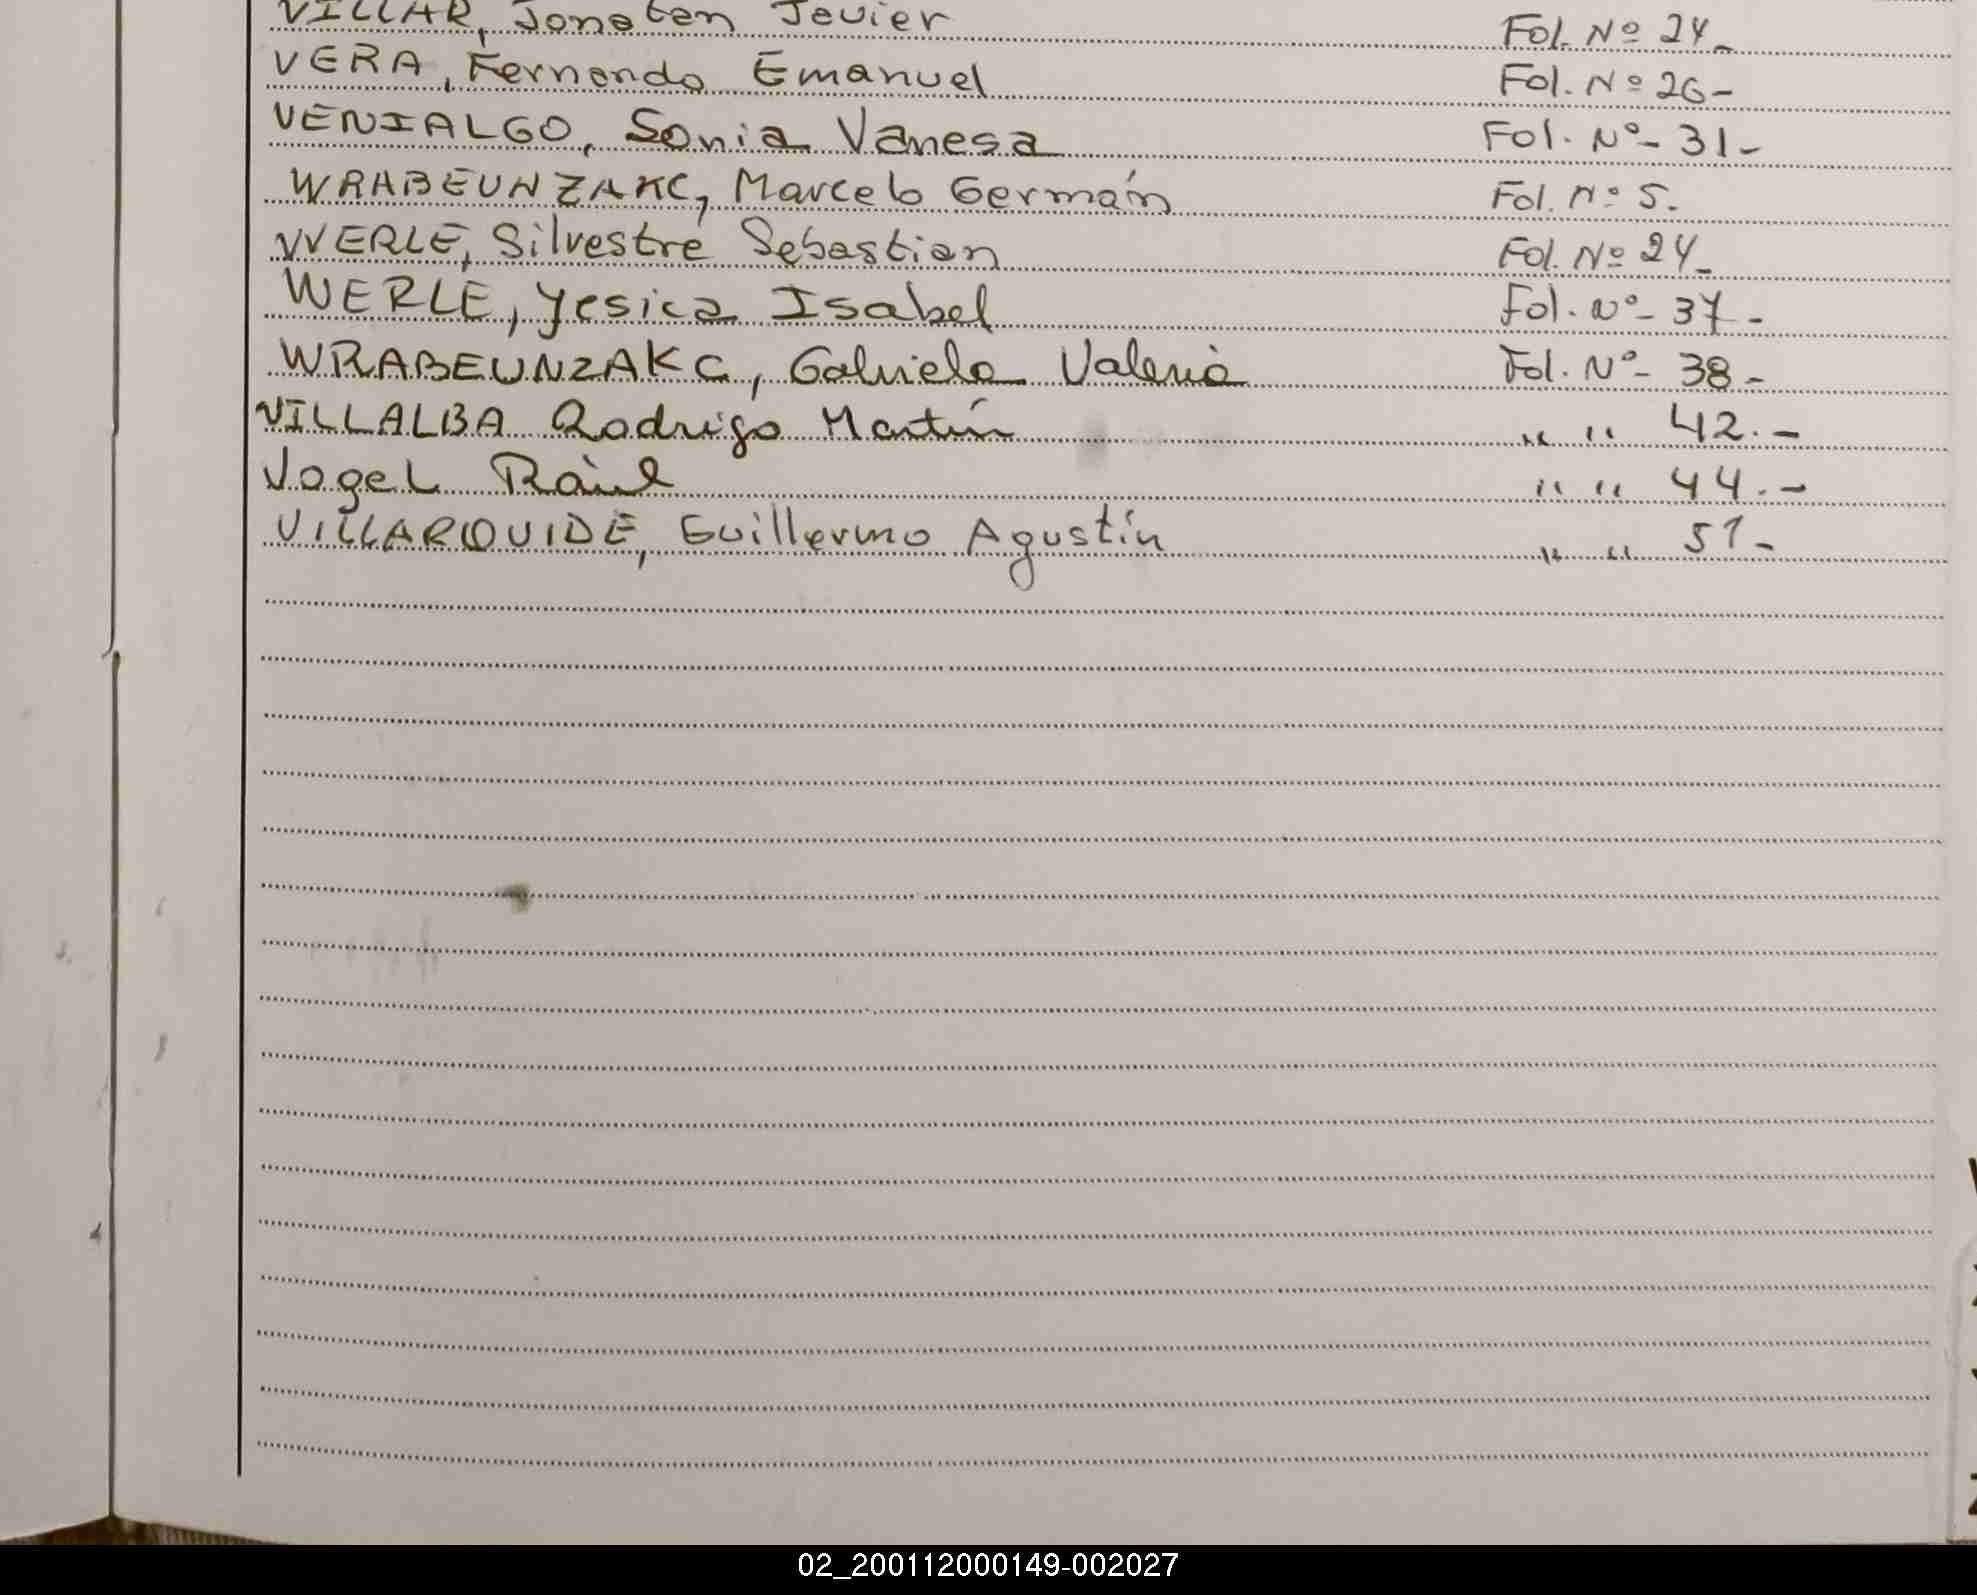 VILLAR, Jonatan Javier Fol. Nº 24_
VERA, Fernando Emanuel Fol. Nº 26-
VENIALGO, Sonia Vanesa Fol. Nº- 31-
WRABEUNZAKC, Marcelo Germán Fol. Nº 5.
WERLE, Silvestre Sebastian Fol. Nº 24_
WERLE, Yesica Isabel Fol. Nº- 37-
WRABEUNZAKC, Gabriela Valeria Fol. Nº- 38-
VILLALBA Rodrigo Martín " " 42.-
Vogel Raùl " " 44.-
VILLARQUIDE, Guillermo Agustín " " 51-
02_200112000149-002027